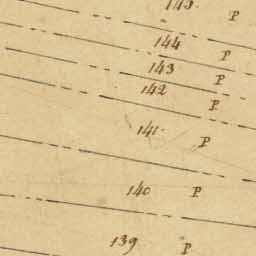 145. P
144 P
143 P
142 P
141. P
140 P
139 P